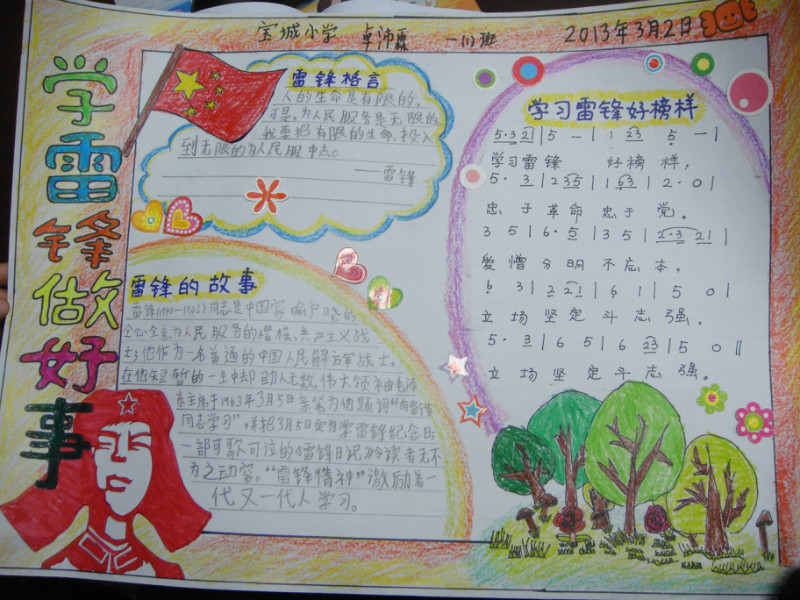 宝城小学 卓沛霖 一(1)班 2013年3月2日
学雷锋做好事
雷锋格言
人的生命是有限的,
可是,为人民服务是无限的
我要把有限的生命,投入
到无限的为人民服中去。
——雷锋
雷锋的故事
雷锋(1940—1962)同志是中国家喻户晓的
全心全意为人民服务的楷模,共产主义战
士;他作为一名普通的中国人民解放军战士,
在他短暂的一生中却助人无数。伟大领袖毛泽
东主席于1963年3月5日亲笔为他题词“向雷锋
同志学习”,并把3月5日定为学雷锋纪念日;
一部可歌可泣的《雷锋日记》令读者无不
为之动容。“雷锋精神”激励着一
代又一代人学习。
学习雷锋好榜样
5·3 21 | 5 — | 1 23 5 — |
学习雷锋 好榜样,
5· 3 | 2 35 | 1 63 | 2·0 |
忠于革命忠于党。
3 5 | 6·5 | 3 5 | 2·3 21 |
爱憎分明不忘本,
6 3 | 2 21 | 6 1 | 5 0 |
立场坚定斗志强。
5· 3 | 6 5 | 6 23 | 5 0 ‖
立场坚定斗志强。